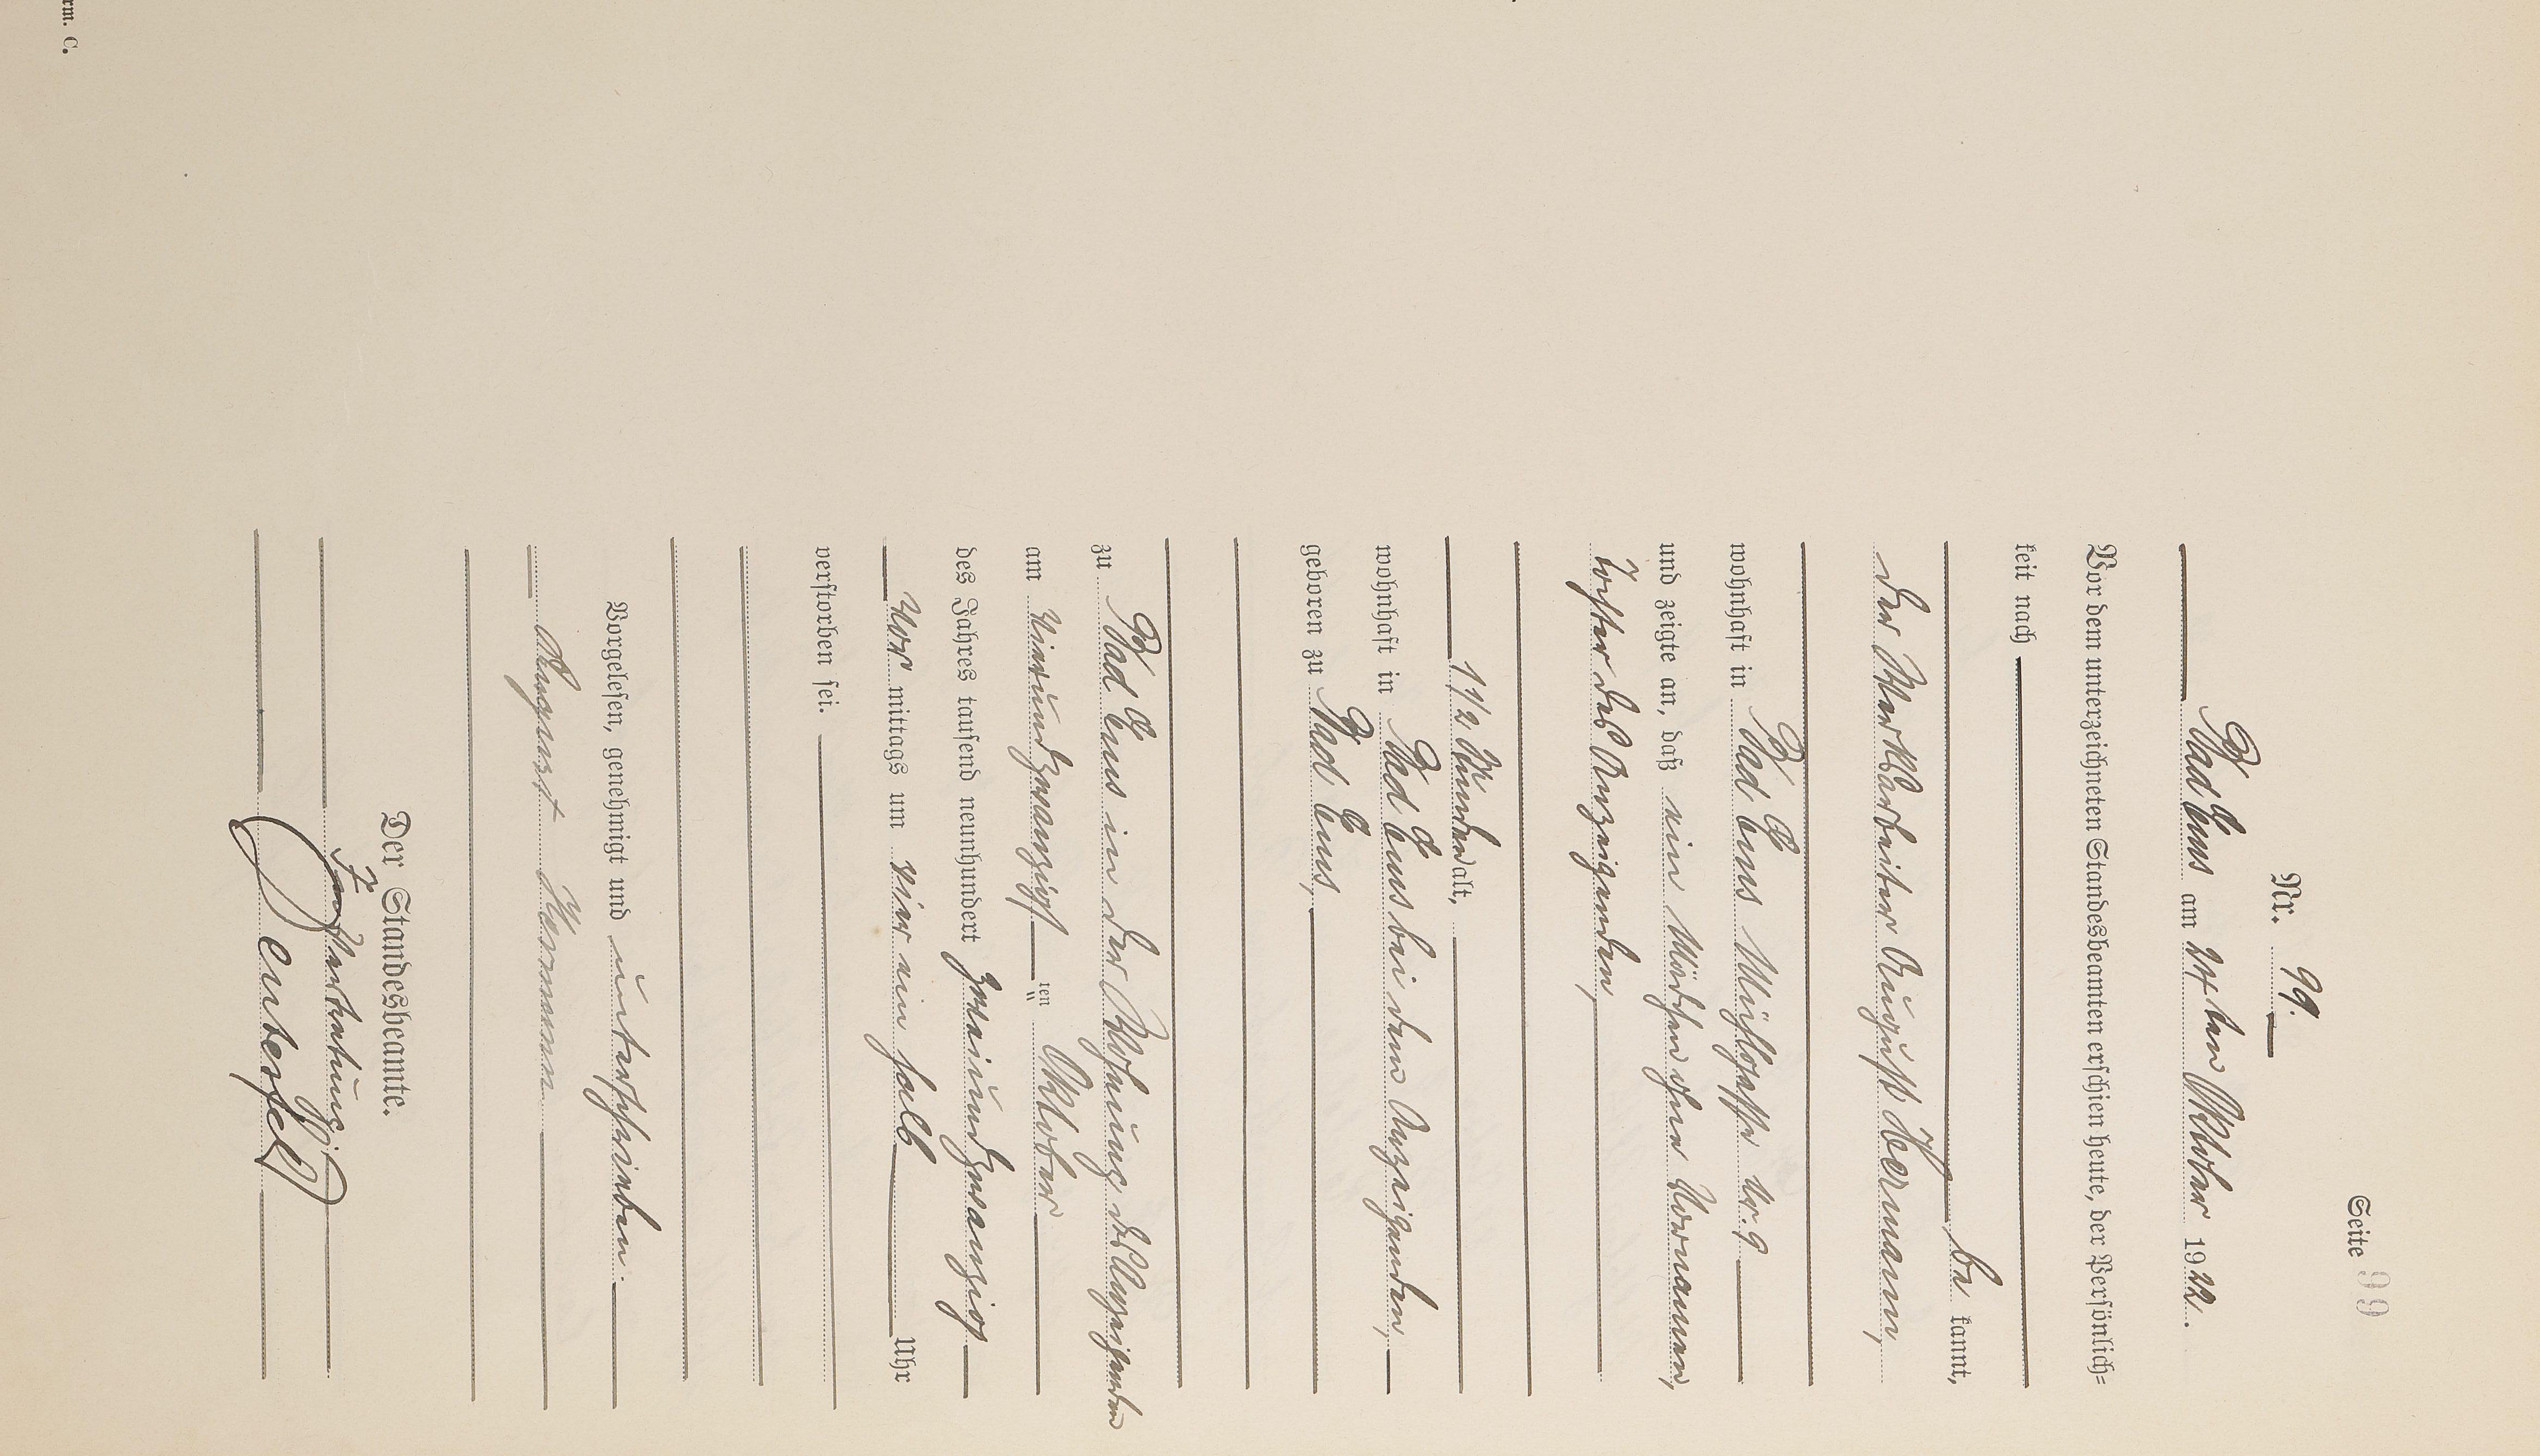 Seite 99
Nr. 99.
Bad Ems am 24ten Oktober 1922.
Vor dem unterzeichneten Standesbeamten erschien heute, der Persönlich=
keit nach
be kannt,
der Werkarbeiter August Hermann,
wohnhaft in Bad Ems Mühlgasse Nr. 9
und zeigte an, daß ein Mädchen ohne Vornamen,
Tochter des Anzeigenden,
1 1/2 Stunden alt,
wohnhaft in Bad Ems bei dem Anzeigenden,
geboren zu Bad Ems,
zu Bad Ems in der Wohnung des Anzeigenden
am vierundzwanzigst ten Oktober
des Jahres tausend neunhundert zweiundzwanzig
Vor mittags um vier ein halb Uhr
verstorben sei.
Vorgelesen, genehmigt und unterschrieben.
August Hermann
Der Standesbeamte.
In Vertretung:
rm. C.